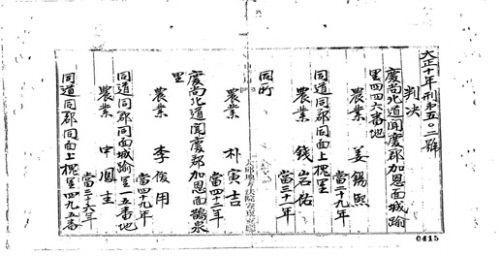 大正十年刑第五〇二號
判決
慶尚北道聞慶郡加恩面城蹄
里四四六番地
農業 姜錫熙
當二十九年
同道同郡同面上槐里
農業 錢岩佑
當三十年
同町
農業 朴寅吉
當四十二年
慶尚北道聞慶郡加恩面鵲泉
里
農業 李俊用
當四十九年
同道同郡同面城蹄里一五番地
農業 申鳳圭
當二十六年
同道同郡同面上槐里四九五番
0415